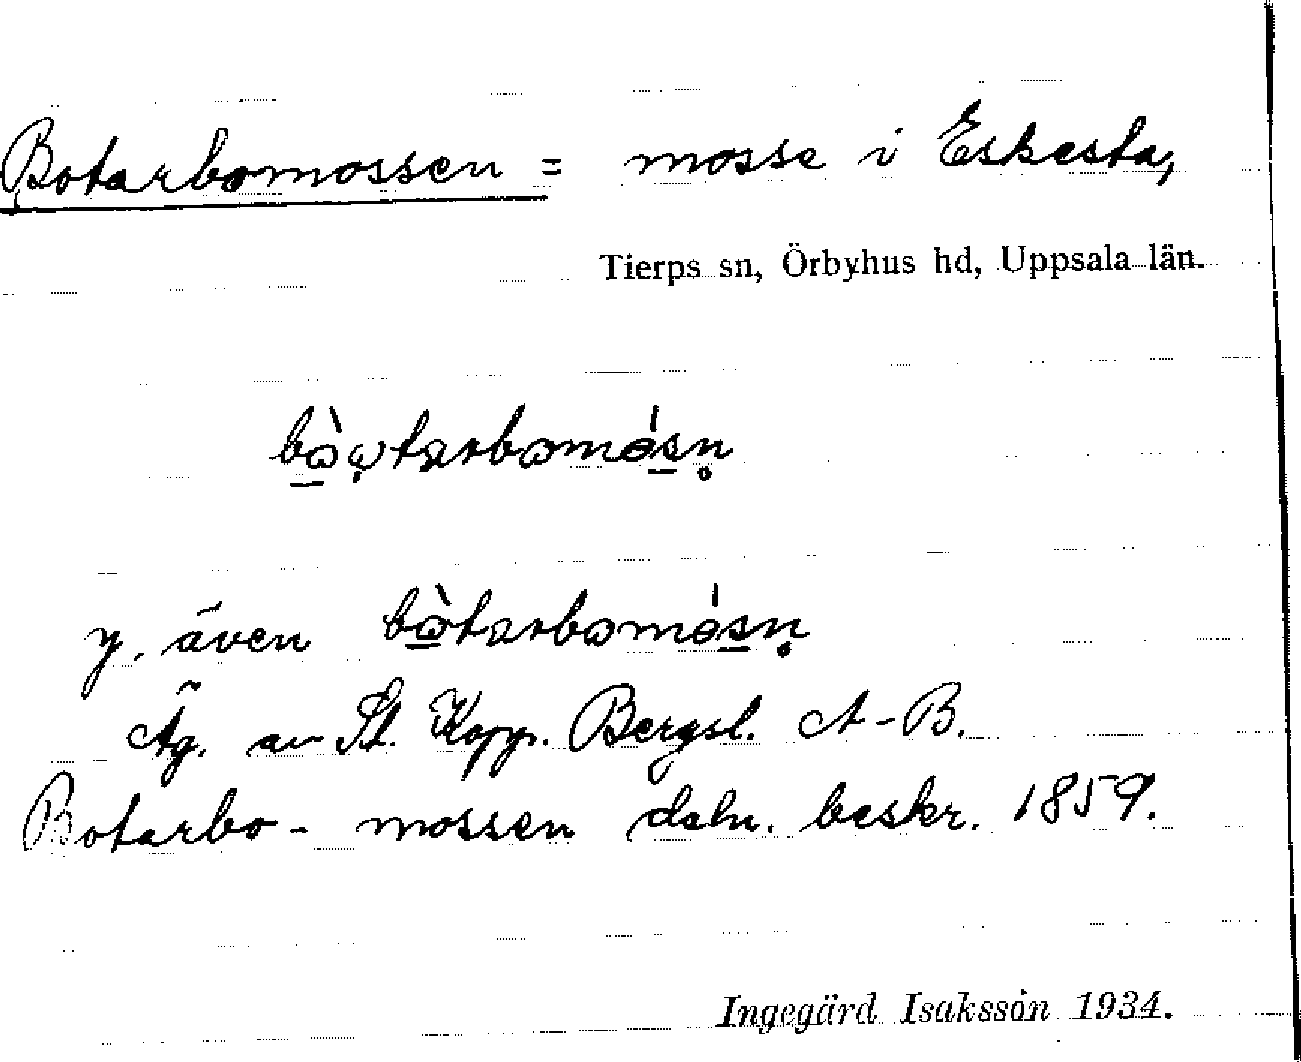 Botarbomossen = mosse i Eskesta,
Tierps sn, Örbyhus hd, Uppsala län.
y. även
Äg. av St. Kopp. Bergsl. A-B.
Botarbo- mossen dsln. beskr. 1859.
Ingegärd Isaksson 1934.